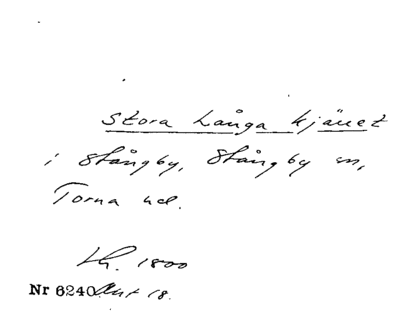 Stora Långa kjäret
i Stångby, Stångby sn,
Torna hd.
Lh. 1800
Nr 6240 Akt 18.